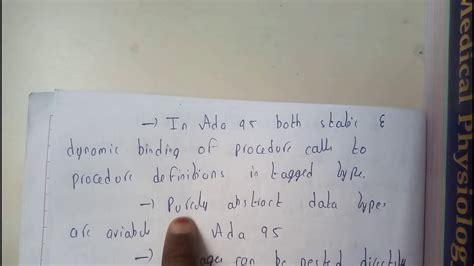 → In Ada 95 both static &
dynamic binding of procedure calls to
procedure definitions in tagged type.
→ Purely abstract data types
are aviabl Ada 95
can be nested directly
Medical Physiolog